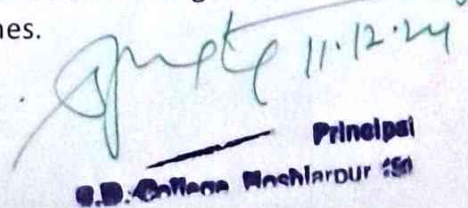 nes.
11.12.24
Principal
S.D. College Hoshiarpur